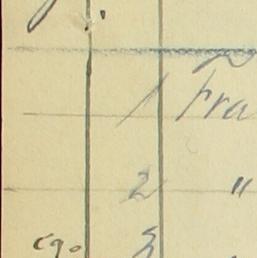 1 Fra
2 "
cq. 3